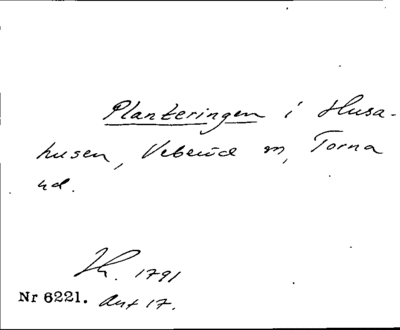 Planteringen i Husa-
husen, Veberöd sn, Torna
hd.
1791
Nr 6221. Art 17.